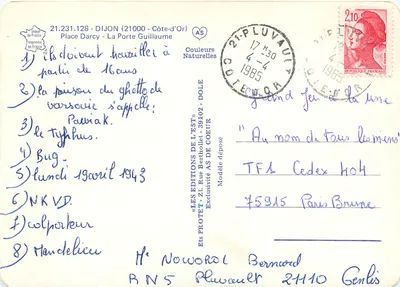 21.231.128 - DIJON (21000 - Côte-d'Or)
Place Darcy - La Porte Guillaume
AS
Couleurs
Naturelles
1) Ils doivent travailler à
partir de 16 ans
2) la prison du ghetto de
varsovie s'appelle:
Pawiak.
3) le Typhus.
4) Bug.
5) lundi 19 avril 1943
6) N.K.V.D.
7) colporteur
8) Mandelieu
«LES EDITIONS DE L'EST»
Ets PROTET - 21, Rue Berthollet - 39102 - DOLE
Exclusivité AS DE COEUR
Modèle déposé
21-PLUVAULT
17H30
4-4
1985
COTE D'OR
2,10
grand jeu de la une
"Au nom de tous les miens"
TF1 Cedex 404
75915 Paris Brune
Mr NOWOROL Bernard
RN5 Pluvault 21110 Genlis